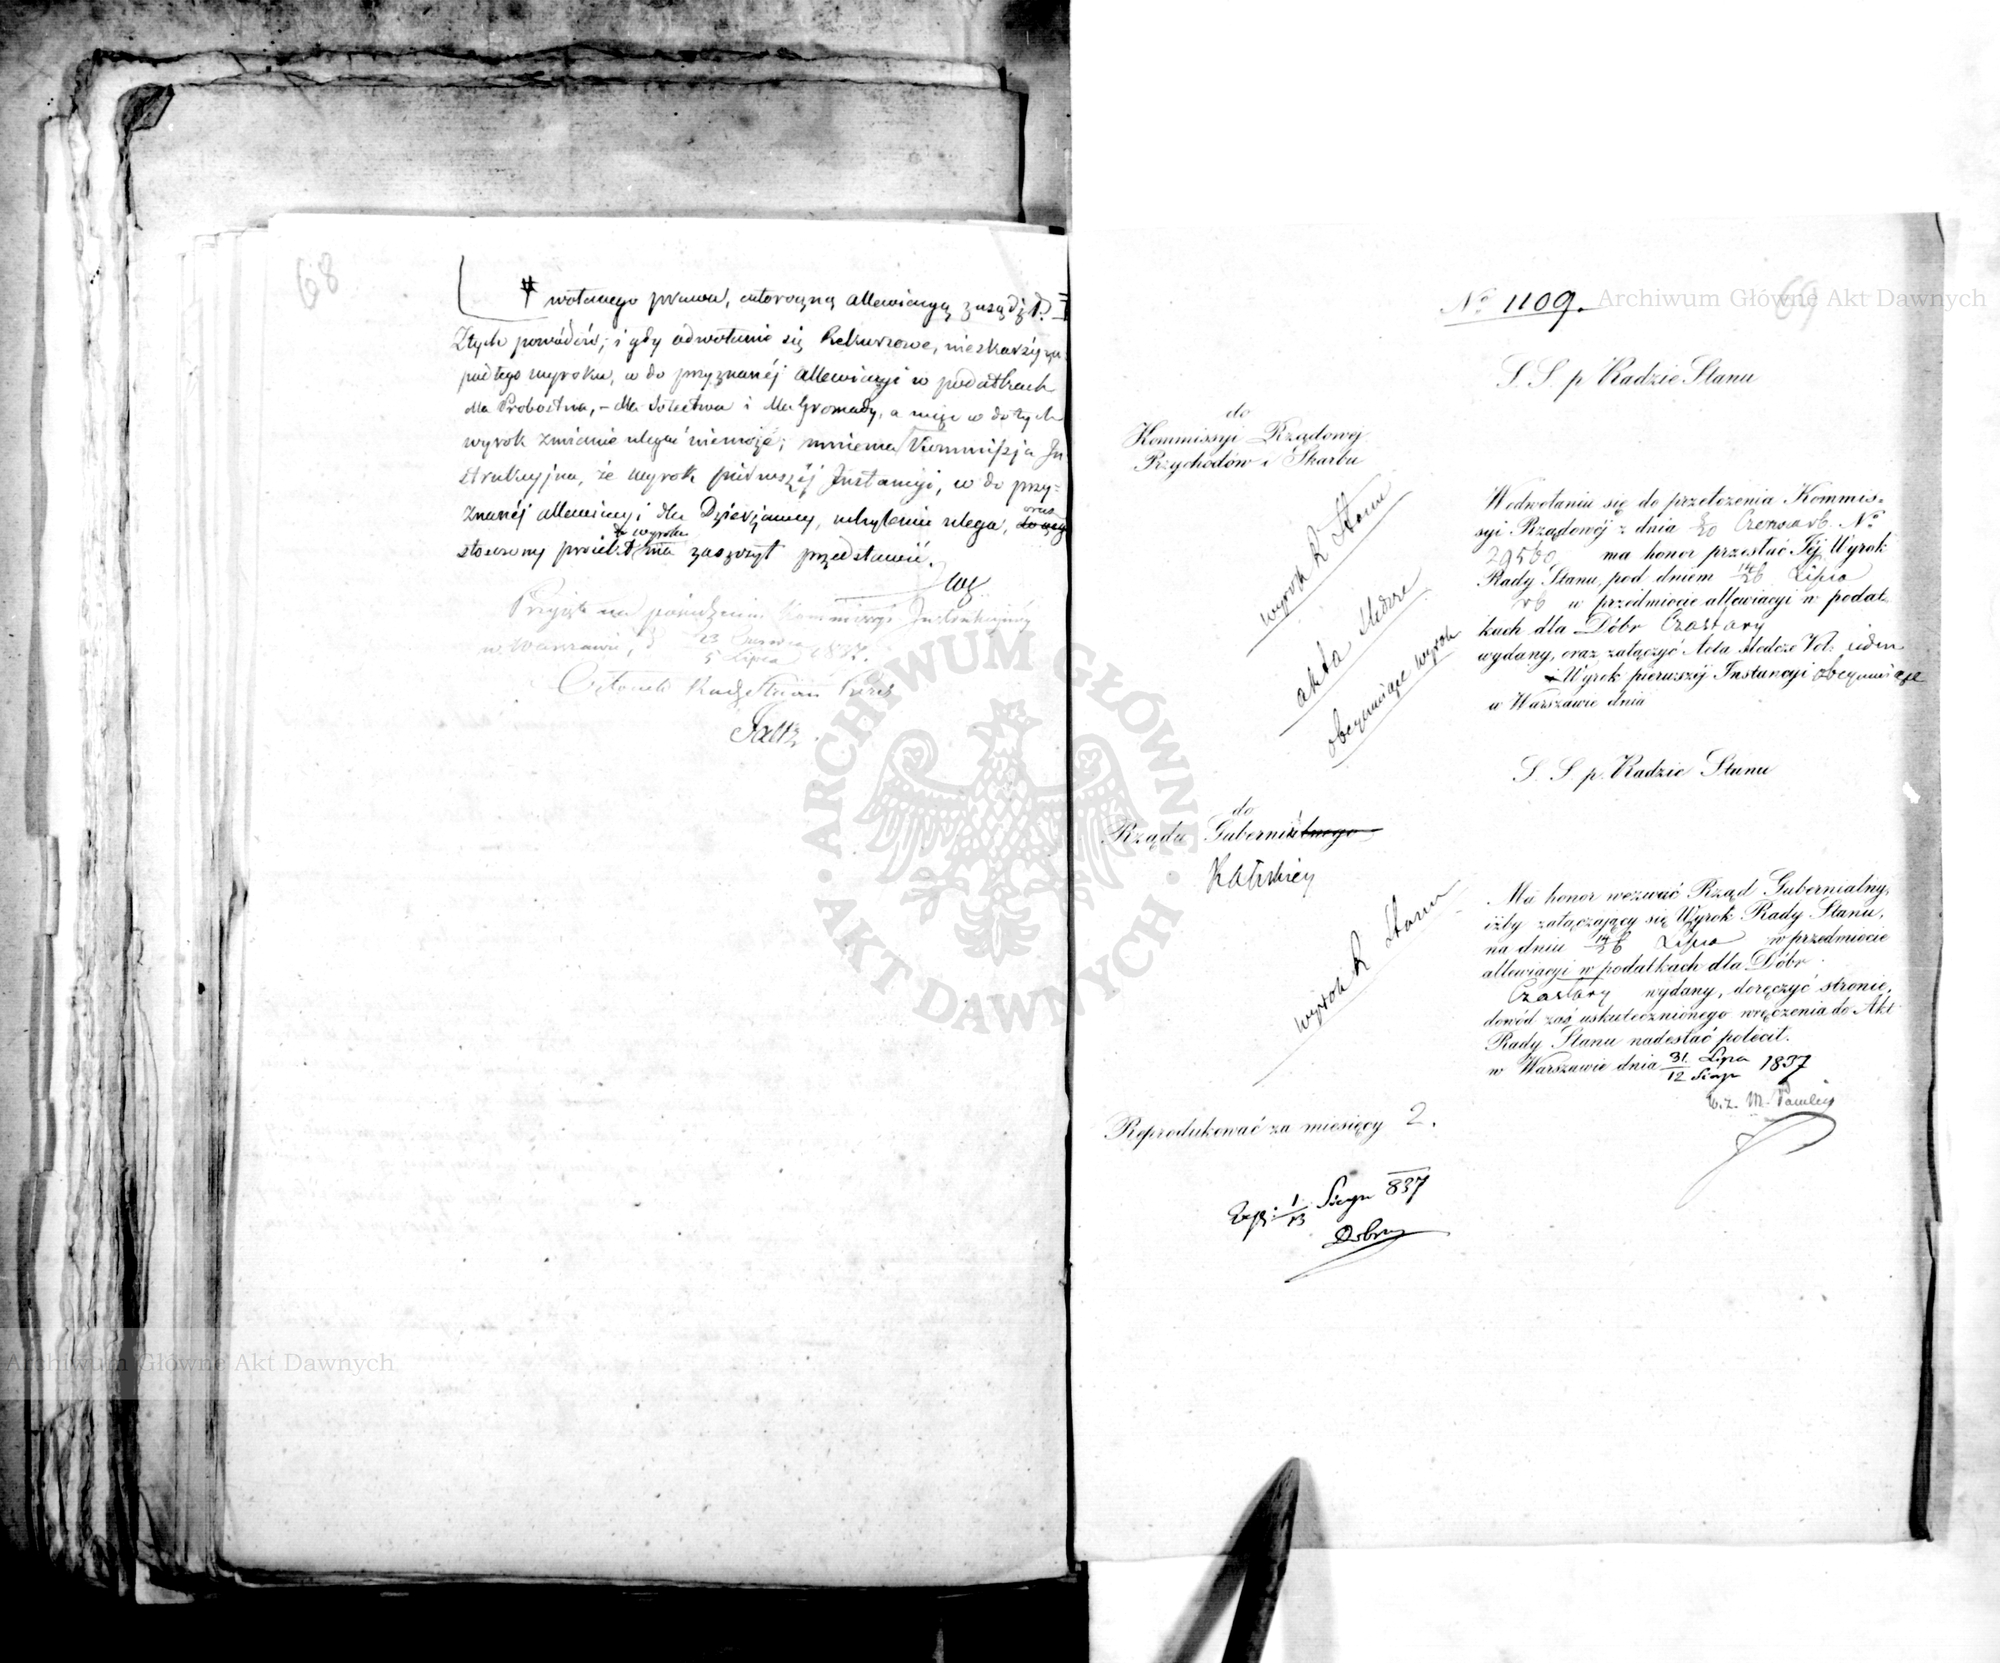 68
wołanego prawa, coroczną allewiacyą zasądził.
Z tych powodów, i gdy odwołanie się Rekursowe, nieskarży
wyroku, co do przyznanéj allewiacyi w podatkach
dla Probostwa, – dla Sołectwa i dla Gromady, a więc co do tych
wyrok zmianie uledz niemoże; mniema Kommissja In-
strukcyjna, że wyrok pierwszéj Instancyi, co do przy-
znanéj allewiacyi dla Dzierżawcy, uchyleniu ulega, oraz
stosowny projekt do wyroku ma zaszczyt przedstawić.
Przyjęto na posiedzeniu Kommissyi Instrukcyjnéj
w Warszawie, d 23 Czerwca / 5 Lipca 1837.
Członek Rady Stanu Prezes
69
No 1109.
Archiwum Główne Akt Dawnych
S. S. p Radzie Stanu
do
Kommissyi Rządowej
Przychodów i Skarbu
W odwołaniu się do przełożenia Kommis-
syi Rządowéj z dnia 8/20 Czerwca rb. No
29500 ma honor przesłać Jéj Wyrok
Rady Stanu, pod dniem 14/26 Lipca
rb w przedmiocie allewiacyi w podat-
kach dla Dóbr Czastary
wydany, oraz załączyć Acta Śledcze Vol: jeden
i Wyrok pierwszéj Instancyi obejmujące
w Warszawie dnia
wyrok R Stanu
akta śledcze
obejmujące wyrok
S. S. p. Radzie Stanu
do
Rządu Gubernialnego
Kaliskiej
Ma honor wezwać Rząd Gubernialny,
iżby załączający się Wyrok Rady Stanu,
na dniu 14/26 Lipca w przedmiocie
allewiacyi w podatkach dla Dóbr
Czastary wydany, doręczyć stronie,
dowód zaś uskutecznionego wręczenia do Akt
Rady Stanu nadesłać polecił.
w Warszawie dnia 31 Lipca / 12 Sierp 1837
wyrok R Stanu
Reprodukować za miesięcy 2.
Exp: 1/13 Sierpn 837
ARCHIWUM GŁÓWNE · AKT DAWNYCH ·
Archiwum Główne Akt Dawnych